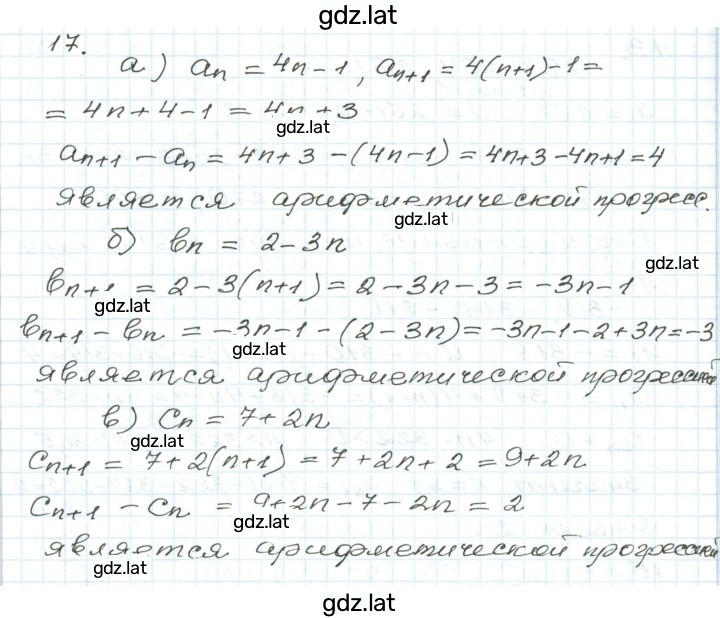 gdz.lat
17.
а) aₙ = 4n - 1, aₙ₊₁ = 4(n+1) - 1 =
= 4n + 4 - 1 = 4n + 3
gdz.lat
aₙ₊₁ - aₙ = 4n + 3 - (4n - 1) = 4n + 3 - 4n + 1 = 4
является арифметической прогресс.
gdz.lat
б) bₙ = 2 - 3n
gdz.lat
bₙ₊₁ = 2 - 3(n+1) = 2 - 3n - 3 = -3n - 1
gdz.lat
bₙ₊₁ - bₙ = -3n - 1 - (2 - 3n) = -3n - 1 - 2 + 3n = -3
gdz.lat
является арифметической прогрессией
в) cₙ = 7 + 2n
gdz.lat
cₙ₊₁ = 7 + 2(n+1) = 7 + 2n + 2 = 9 + 2n
cₙ₊₁ - cₙ = 9 + 2n - 7 - 2n = 2
gdz.lat
является арифметической прогрессией
gdz.lat
gdz.lat